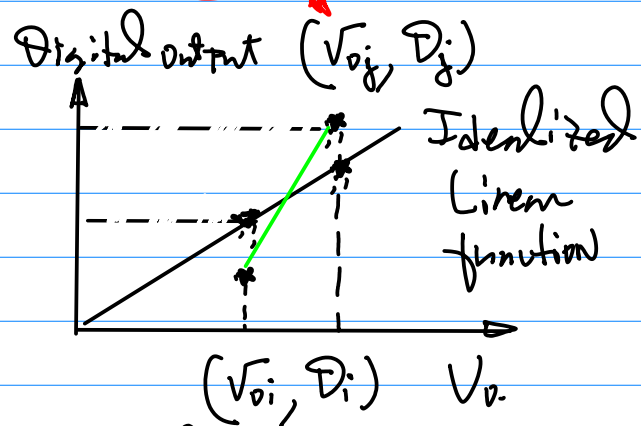 Digital output (V_Dj, D_j)
Idealized
Linear
function
(V_Di, D_i) V_D.